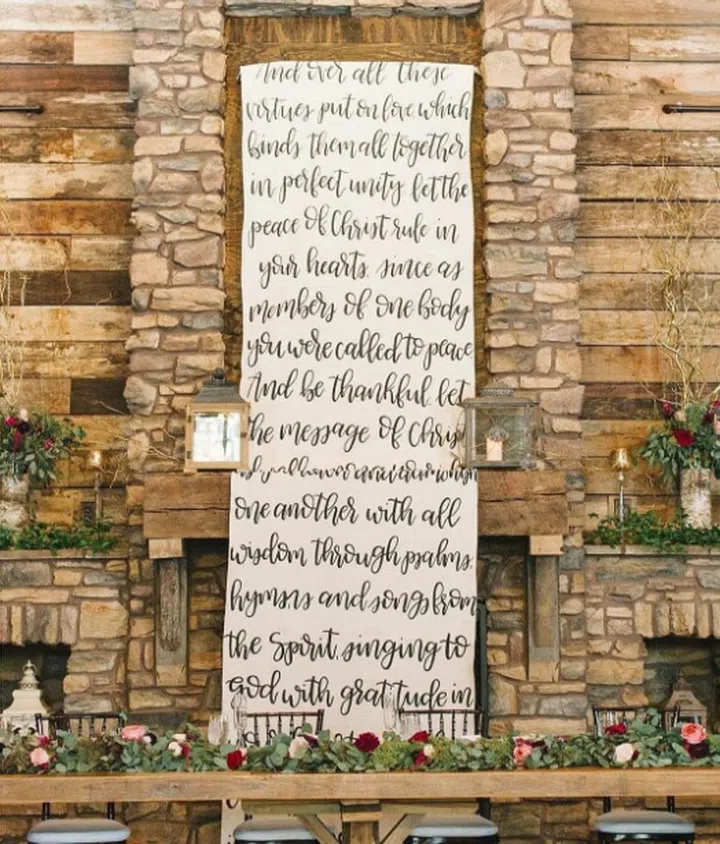 And over all these
virtues put on love, which
binds them all together
in perfect unity let the
peace of Christ rule in
your hearts, since as
members of one body
you were called to peace
And be thankful, let
the message of Christ
one another with all
wisdom through psalms,
hymns and songs from
the Spirit, singing to
God with gratitude in